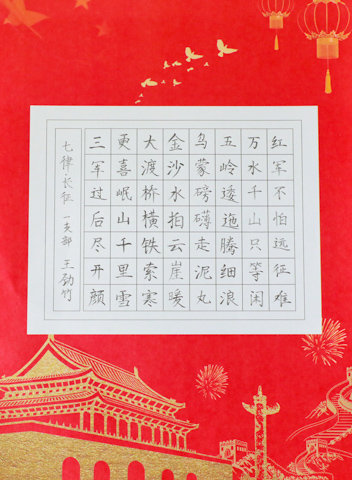 红军不怕远征难
万水千山只等闲
五岭逶迤腾细浪
乌蒙磅礴走泥丸
金沙水拍云崖暖
大渡桥横铁索寒
更喜岷山千里雪
三军过后尽开颜
七律 长征 一支部 王劲竹